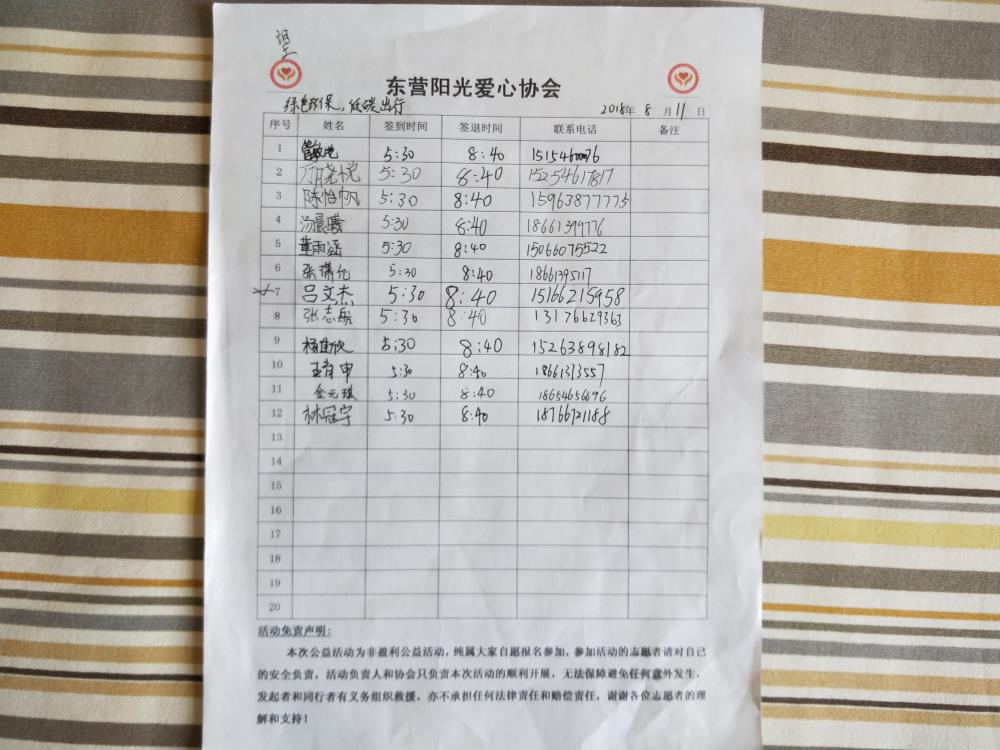 东营阳光爱心协会
绿色环保，低碳出行 2018年 8 月 11 日
序号 姓名 签到时间 签退时间 联系电话 备注
1 5:30 8:40
2 5:30 8:40 15254617817
3 陈怡帆 5:30 8:40 15963877775
4 汤晨曦 5:30 8:40 18661399776
5 董雨涵 5:30 8:40 15066075522
6 张潇允 5:30 8:40 18661395117
7 吕文杰 5:30 8:40 15166215958
8 张志航 5:30 8:40 13176629363
9 5:30 8:40 15263898182
10 5:30 8:40 18661313557
11 金元琪 5:30 8:40 18654656696
12 林冠宇 5:30 8:40 18766721188
13
14
15
16
17
18
19
20
活动免责声明：
本次公益活动为非盈利公益活动，纯属大家自愿报名参加，参加活动的志愿者请对自己
的安全负责，活动负责人和协会只负责本次活动的顺利开展，无法保障避免任何意外发生，
发起者和同行者有义务组织救援，亦不承担任何法律责任和赔偿责任，谢谢各位志愿者的理
解和支持！